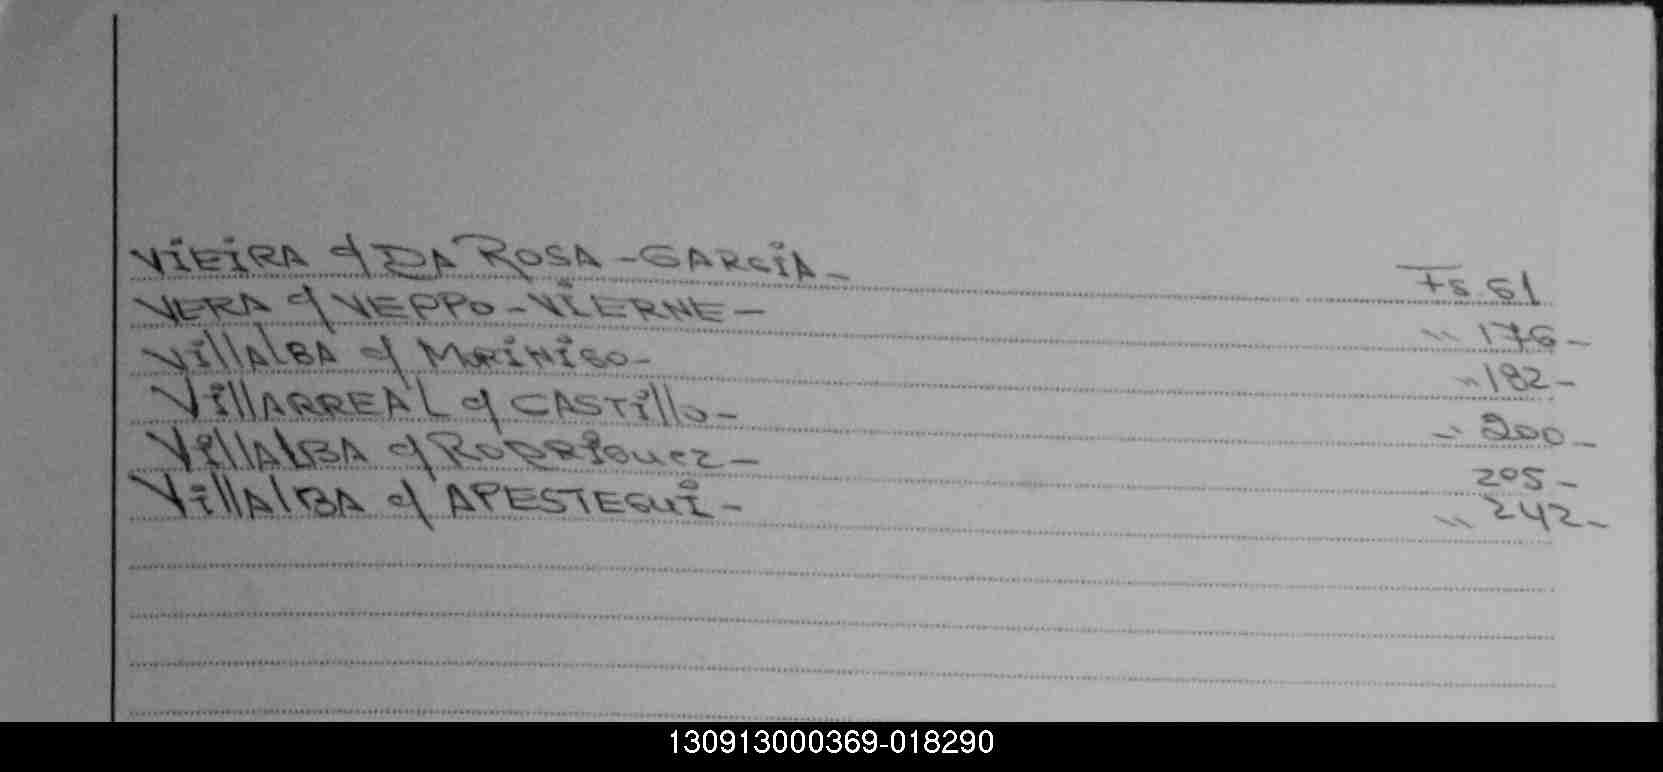 VIEIRA c/ DA ROSA - GARCÍA - Fs. 61
VERA c/ VEPPO - VIERNE - " 176 -
VillAlBA c/ MORÍNIGO - " 182 -
VillARREAL c/ CASTillo - " 200 -
VillAlBA c/ RODRÍGUEZ - 205 -
VillAlBA c/ APESTEGUI - " 242 -
130913000369-018290